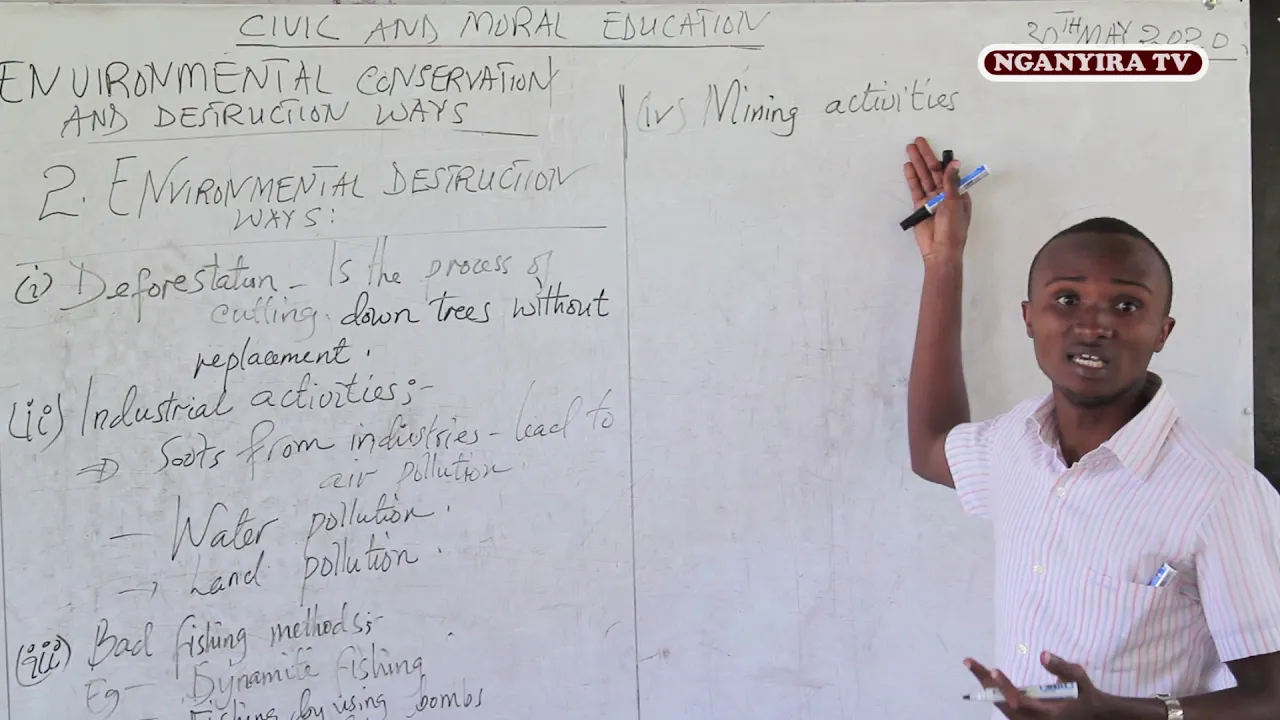 CIVIC AND MORAL EDUCATION
30TH MAY 2020
NGANYIRA TV
ENVIRONMENTAL CONSERVATION
AND DESTRUCTION WAYS
2. ENVIRONMENTAL DESTRUCTION
WAYS:
(i) Deforestation - Is the process of
cutting down trees without
replacement.
(ii) Industrial activities;-
⇒ Soots from industries - lead to
air pollution
- Water pollution.
→ Land pollution.
(iii) Bad fishing methods;-
Eg - Dynamite fishing
Fishing by using bombs
(iv) Mining activities